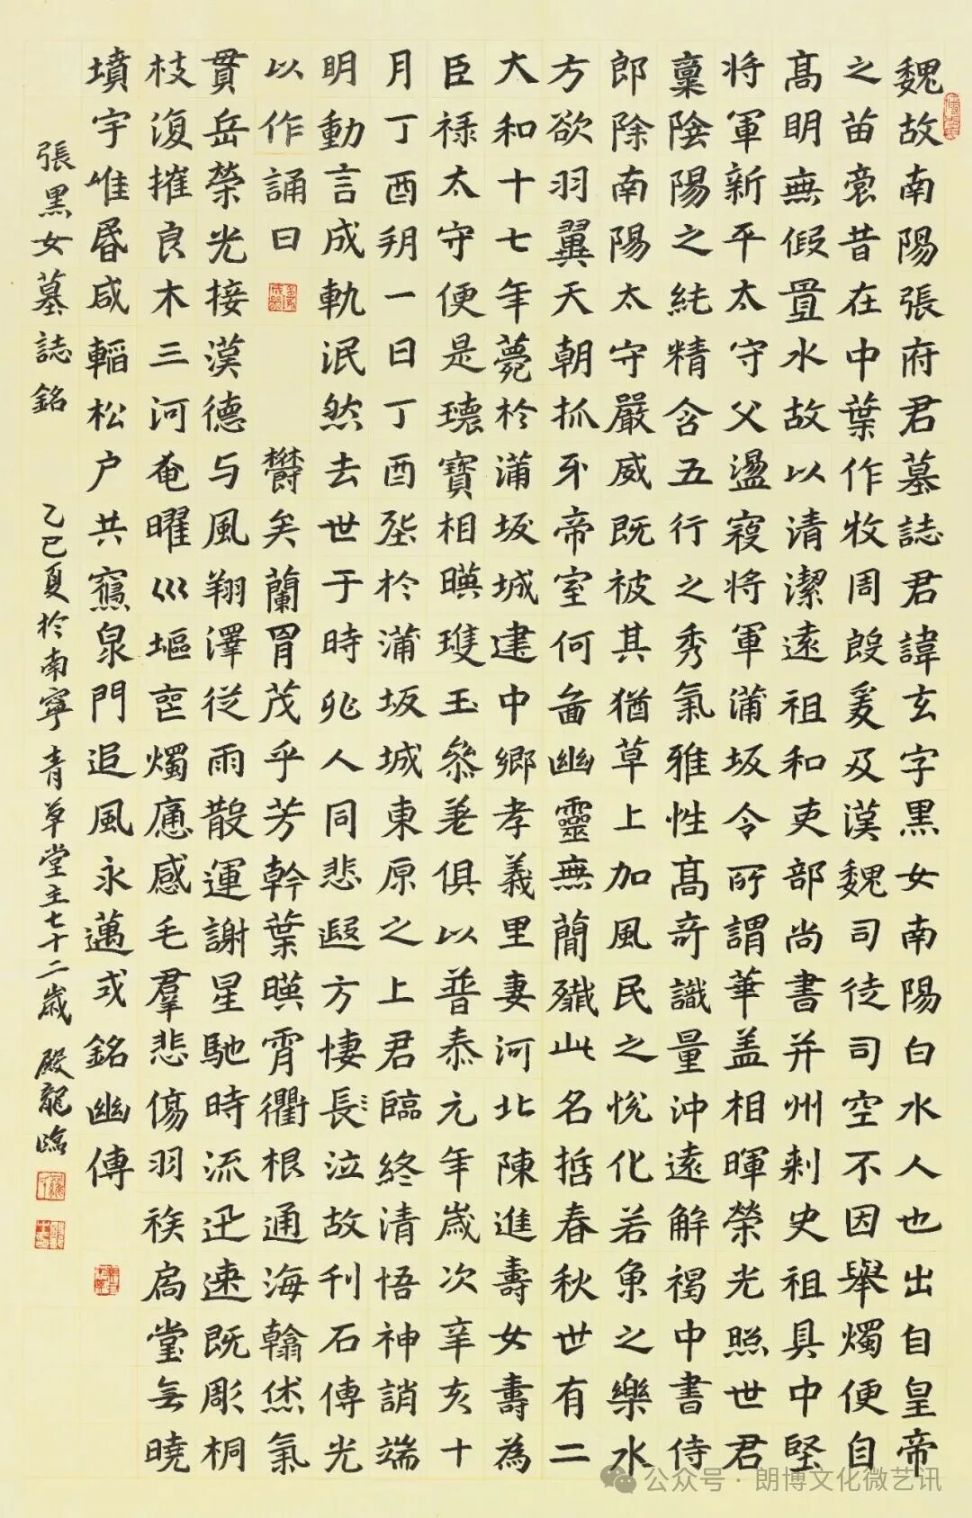 魏故南陽張府君墓誌君諱玄字黑女南陽白水人也出自皇帝
之苗裔昔在中葉作牧周殷爰及漢魏司徒司空不因舉燭便自
高明無假置水故以清潔遠祖和吏部尚書并州刺史祖具中堅
將軍新平太守父盪寇將軍蒲坂令所謂華蓋相暉榮光照世君
稟陰陽之純精含五行之秀氣雅性高奇識量沖遠解褐中書侍
郎除南陽太守嚴威既被其猶草上加風民之悅化若魚之樂水
方欲羽翼天朝抓牙帝室何啚幽靈無簡殲此名哲春秋世有二
大和十七年薨於蒲坂城建中鄉孝義里妻河北陳進壽女壽為
臣祿太守便是瓌寶相暎瓊玉參差俱以普泰元年歲次辛亥十
月丁酉朔一日丁酉塟於蒲坂城東原之上君臨終清悟神誚端
明動言成軌泯然去世于時兆人同悲遐方悽長〻泣故刊石傳光
以作誦曰 欝矣蘭胃茂乎芳幹葉暎霄衢根通海翰烋氣
貫岳榮光接漢德与風翔澤從雨散運謝星馳時流迅速既彫桐
枝復摧良木三河奄曜巛塸𡧯燭痝感毛羣悲傷羽族扃堂无曉
墳宇唯昏咸輼松户共寱泉門追風永邁式銘幽傳
張黑女墓誌銘 乙巳夏於南寧青草堂主七十二歲 殿龍臨
公众号·朗博文化微艺讯